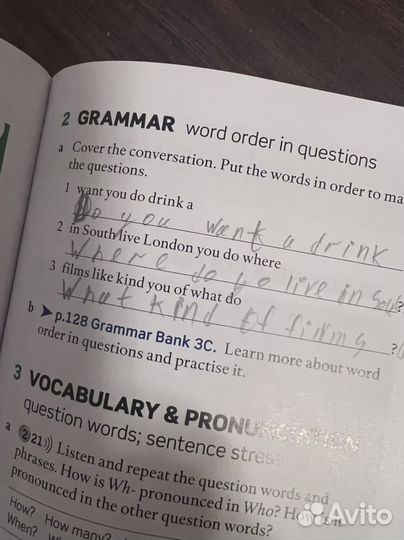 2 GRAMMAR word order in questions
a Cover the conversation. Put the words in order to ma
the questions.
1 want you do drink a
Do you want a drink
2 in South live London you do where
Where do yo live in Sou ?
3 films like kind you of what do
What kind of films ?
b p.128 Grammar Bank 3C. Learn more about word
order in questions and practise it.
3 VOCABULARY & PRONUNCIATION
question words; sentence stress
a 2 21)) Listen and repeat the question words and
phrases. How is Wh- pronounced in Who? How is it
pronounced in the other question words?
How? How many?
When?
Avito